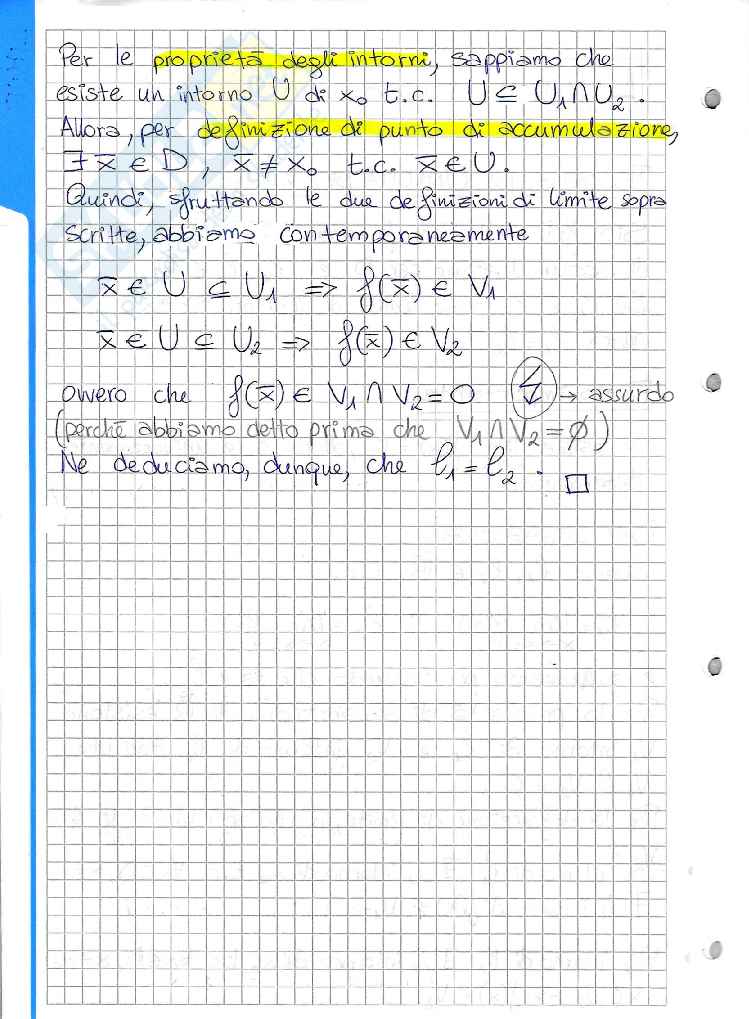 Per le proprietà degli intorni, sappiamo che
esiste un intorno U di x₀ t.c. U ⊆ U₁ ∩ U₂ .
Allora, per definizione di punto di accumulazione,
∃ x̄ ∈ D , x̄ ≠ x₀ t.c. x̄ ∈ U .
Quindi, sfruttando le due definizioni di limite sopra
scritte, abbiamo contemporaneamente
x̄ ∈ U ⊆ U₁ => f(x̄) ∈ V₁
x̄ ∈ U ⊆ U₂ => f(x̄) ∈ V₂
ovvero che f(x̄) ∈ V₁ ∩ V₂ = 0 ↯ → assurdo
(perchè abbiamo detto prima che V₁ ∩ V₂ = ∅)
Ne deduciamo, dunque, che ℓ₁ = ℓ₂ . □